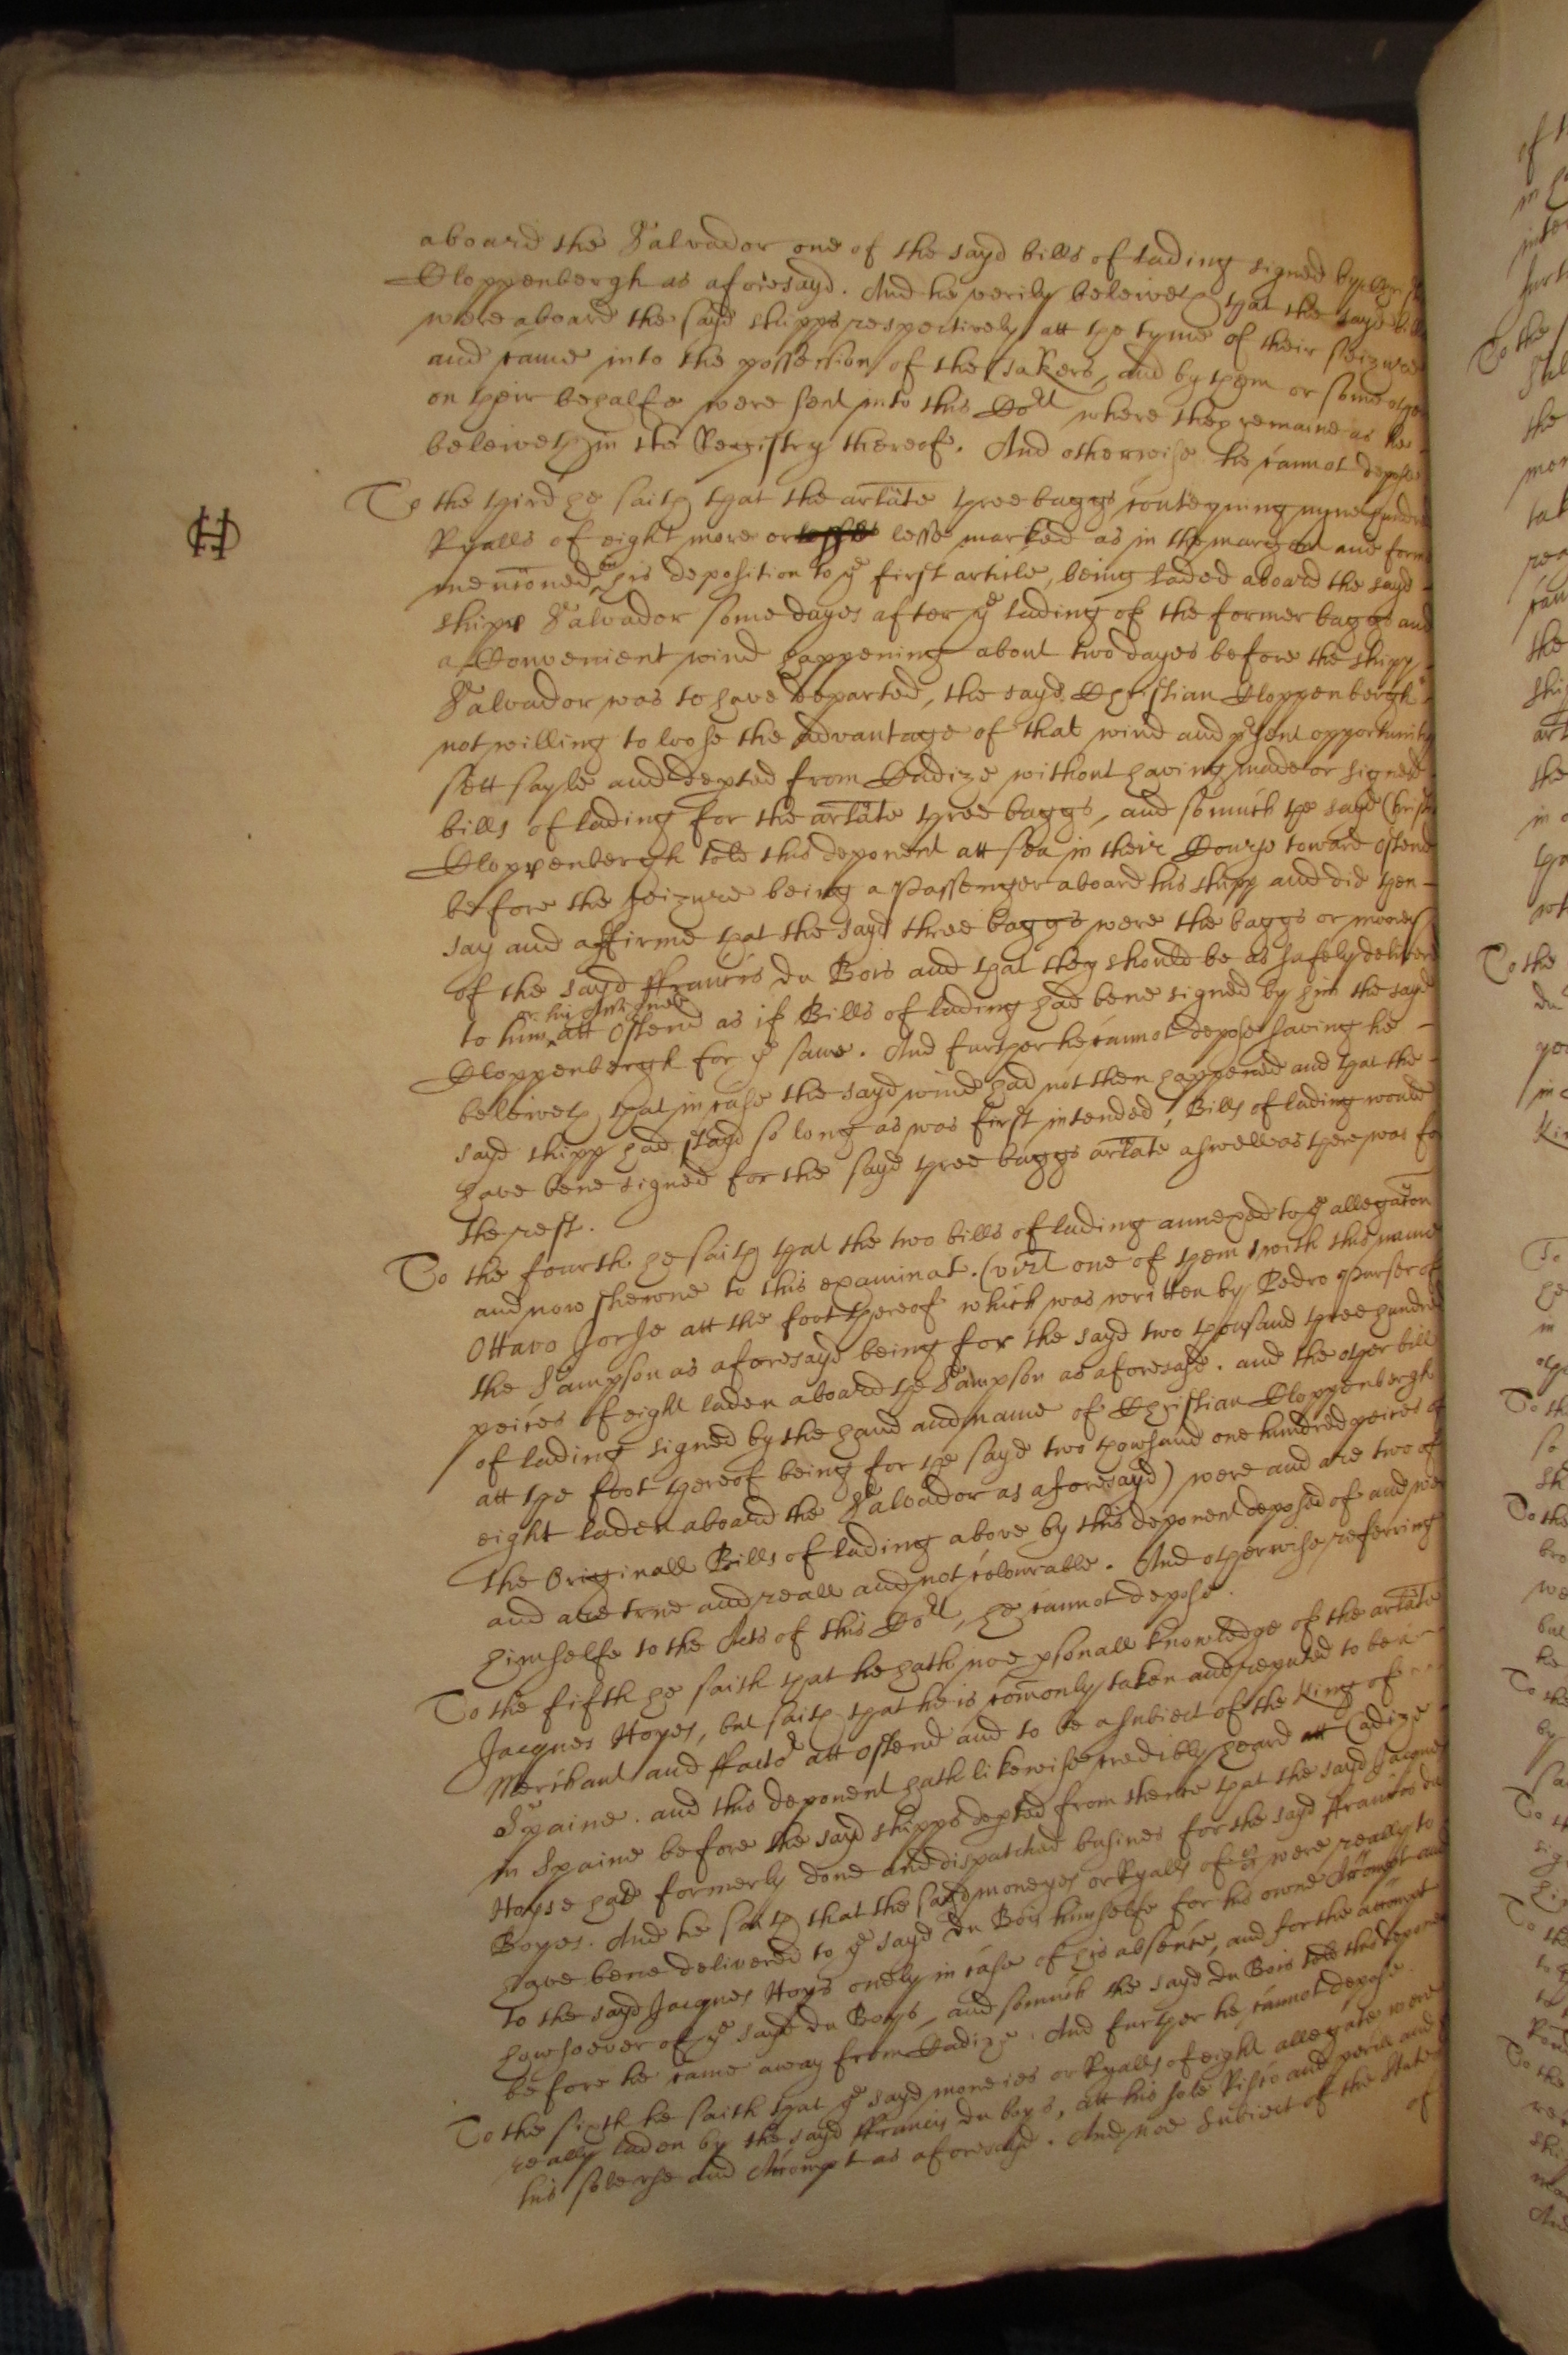 aboard the Salvador one of the sayd bills of lading signed by
Cloppenbergh as aforesayd. And he verily beleiveth that the sayd bills
were aboard the sayd shipps respectively att the tyme of their seizure
and came into the possession of the takers, and by them or some other
on their behalfe were sent into this Cort where they remaine as he
beleiveth in the Registry thereof. And otherwise he cannot depose
To the third he saith that the artãte three baggs conteyning nyne hundred
Ryalls of eight more or lesse marked as in the margent and form
menc̃oned in his deposition to ye first article, being laded aboard the sayd
shipp Salvador some dayes after ye lading of the former baggs and
a Convenient wind happening about two dayes before the shipp
Salvador was to have departed, the sayd Christian Cloppenbergh
not willing to loose the advantage of that wind and p̃sent opportunity
sett sayle and dep̃ted from Cadize without having made or signed
bills of lading for the artãte three baggs, and somuch the sayd Christian
Cloppenbergh told this deponent att sea in their Course toward Ostend
before the seizure being a Passenger aboard his shipp and did then
say and affirme that the sayd three baggs were the baggs or moneys
of the sayd ffrancis du Bois and that they should be as safely delivered
to him or his Assignes att Ostend as if Bills of lading had bene signed by him the sayd
Cloppenbergh for ye same. And further he cannot depose saving he
beleiveth that in case the sayd wind had not then happened and that the
sayd shipp had stayd so long as was first intended, Bills of lading would
have bene signed for the sayd three baggs artãte aswell as there was for
the rest.
To the fourth he saith that the two bills of lading annexed to ye allegac̃on
and now shewne to this examinat. (vizt one of them with this name
Ottavo Jorse att the foot thereof which was written by Pedro Purser of
the Sampson as aforesayd being for the sayd two thousand three hundred
peices of eight laden aboard the Sampson as aforesayd. and the other bill
of lading signed by the hand and name of Christian Cloppenbergh
att the foot thereof being for the sayd two thowsand one hundred peices of
eight laden aboard the Salvador as aforesayd) were and are two of
the Originall Bills of lading above by this deponent deposed of and were
and are true and reall and not colourable. And otherwise referring
himselfe to the Acts of this Cort, he cannot depose.
To the fifth he saith that he hath noe p̃sonall knowledge of the artãte
Jacques Hoyes, but saith that he is com̃only taken and reputed to be a
Merchant and ffactor att Ostend and to be a subiect of the King of
Spaine. and this deponent hath likewise credibly heard att Cadize
in Spaine before the sayd shipps dep̃ted from thence that the sayd Jacques
Hoyse had formerly done and dispatched busines for the sayd ffrancis du
Boyes. And he saith that the sayd moneyes or Ryalls of 8/8 were really to
have bene delivered to ye sayd du Bois himselfe for his owne Accompt and
to the sayd Jacques Hoys onely in case of his absence, and for the accompt
howsoever of ye sayd du Boys, and somuch the sayd du Bois told this deponent
before he came away from Cadize. And further he cannot depose.
To the sixth he saith that ye sayd moneies or Ryalls of eight allegate were
really laden by the sayd ffrancis du boys, att his sole Risco and perill and
his sole use and Accompt as aforesayd. And noe Subiect of the States
of